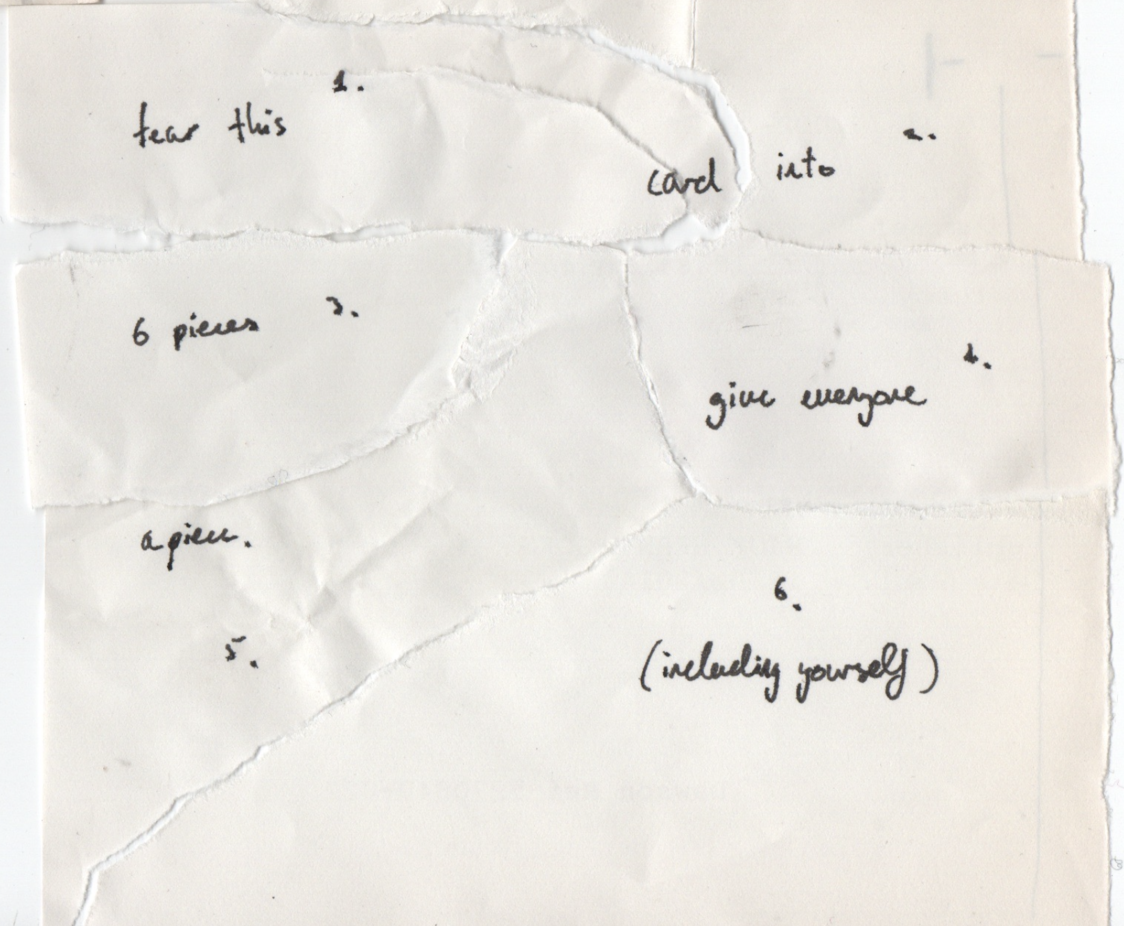 1.
tear this
card into
2.
6 pieces
3.
give everyone
4.
a piece.
5.
6.
(including yourself)